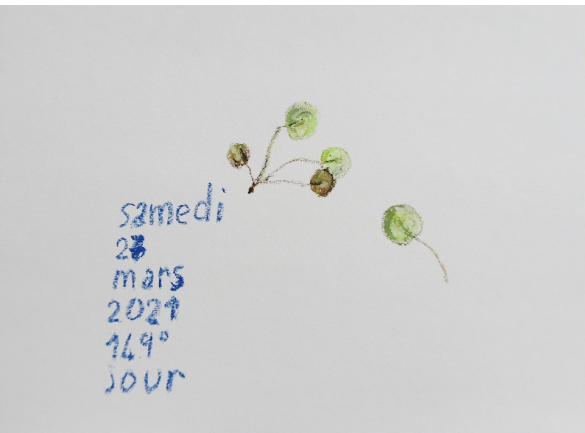 samedi
27
mars
2021
149°
jour